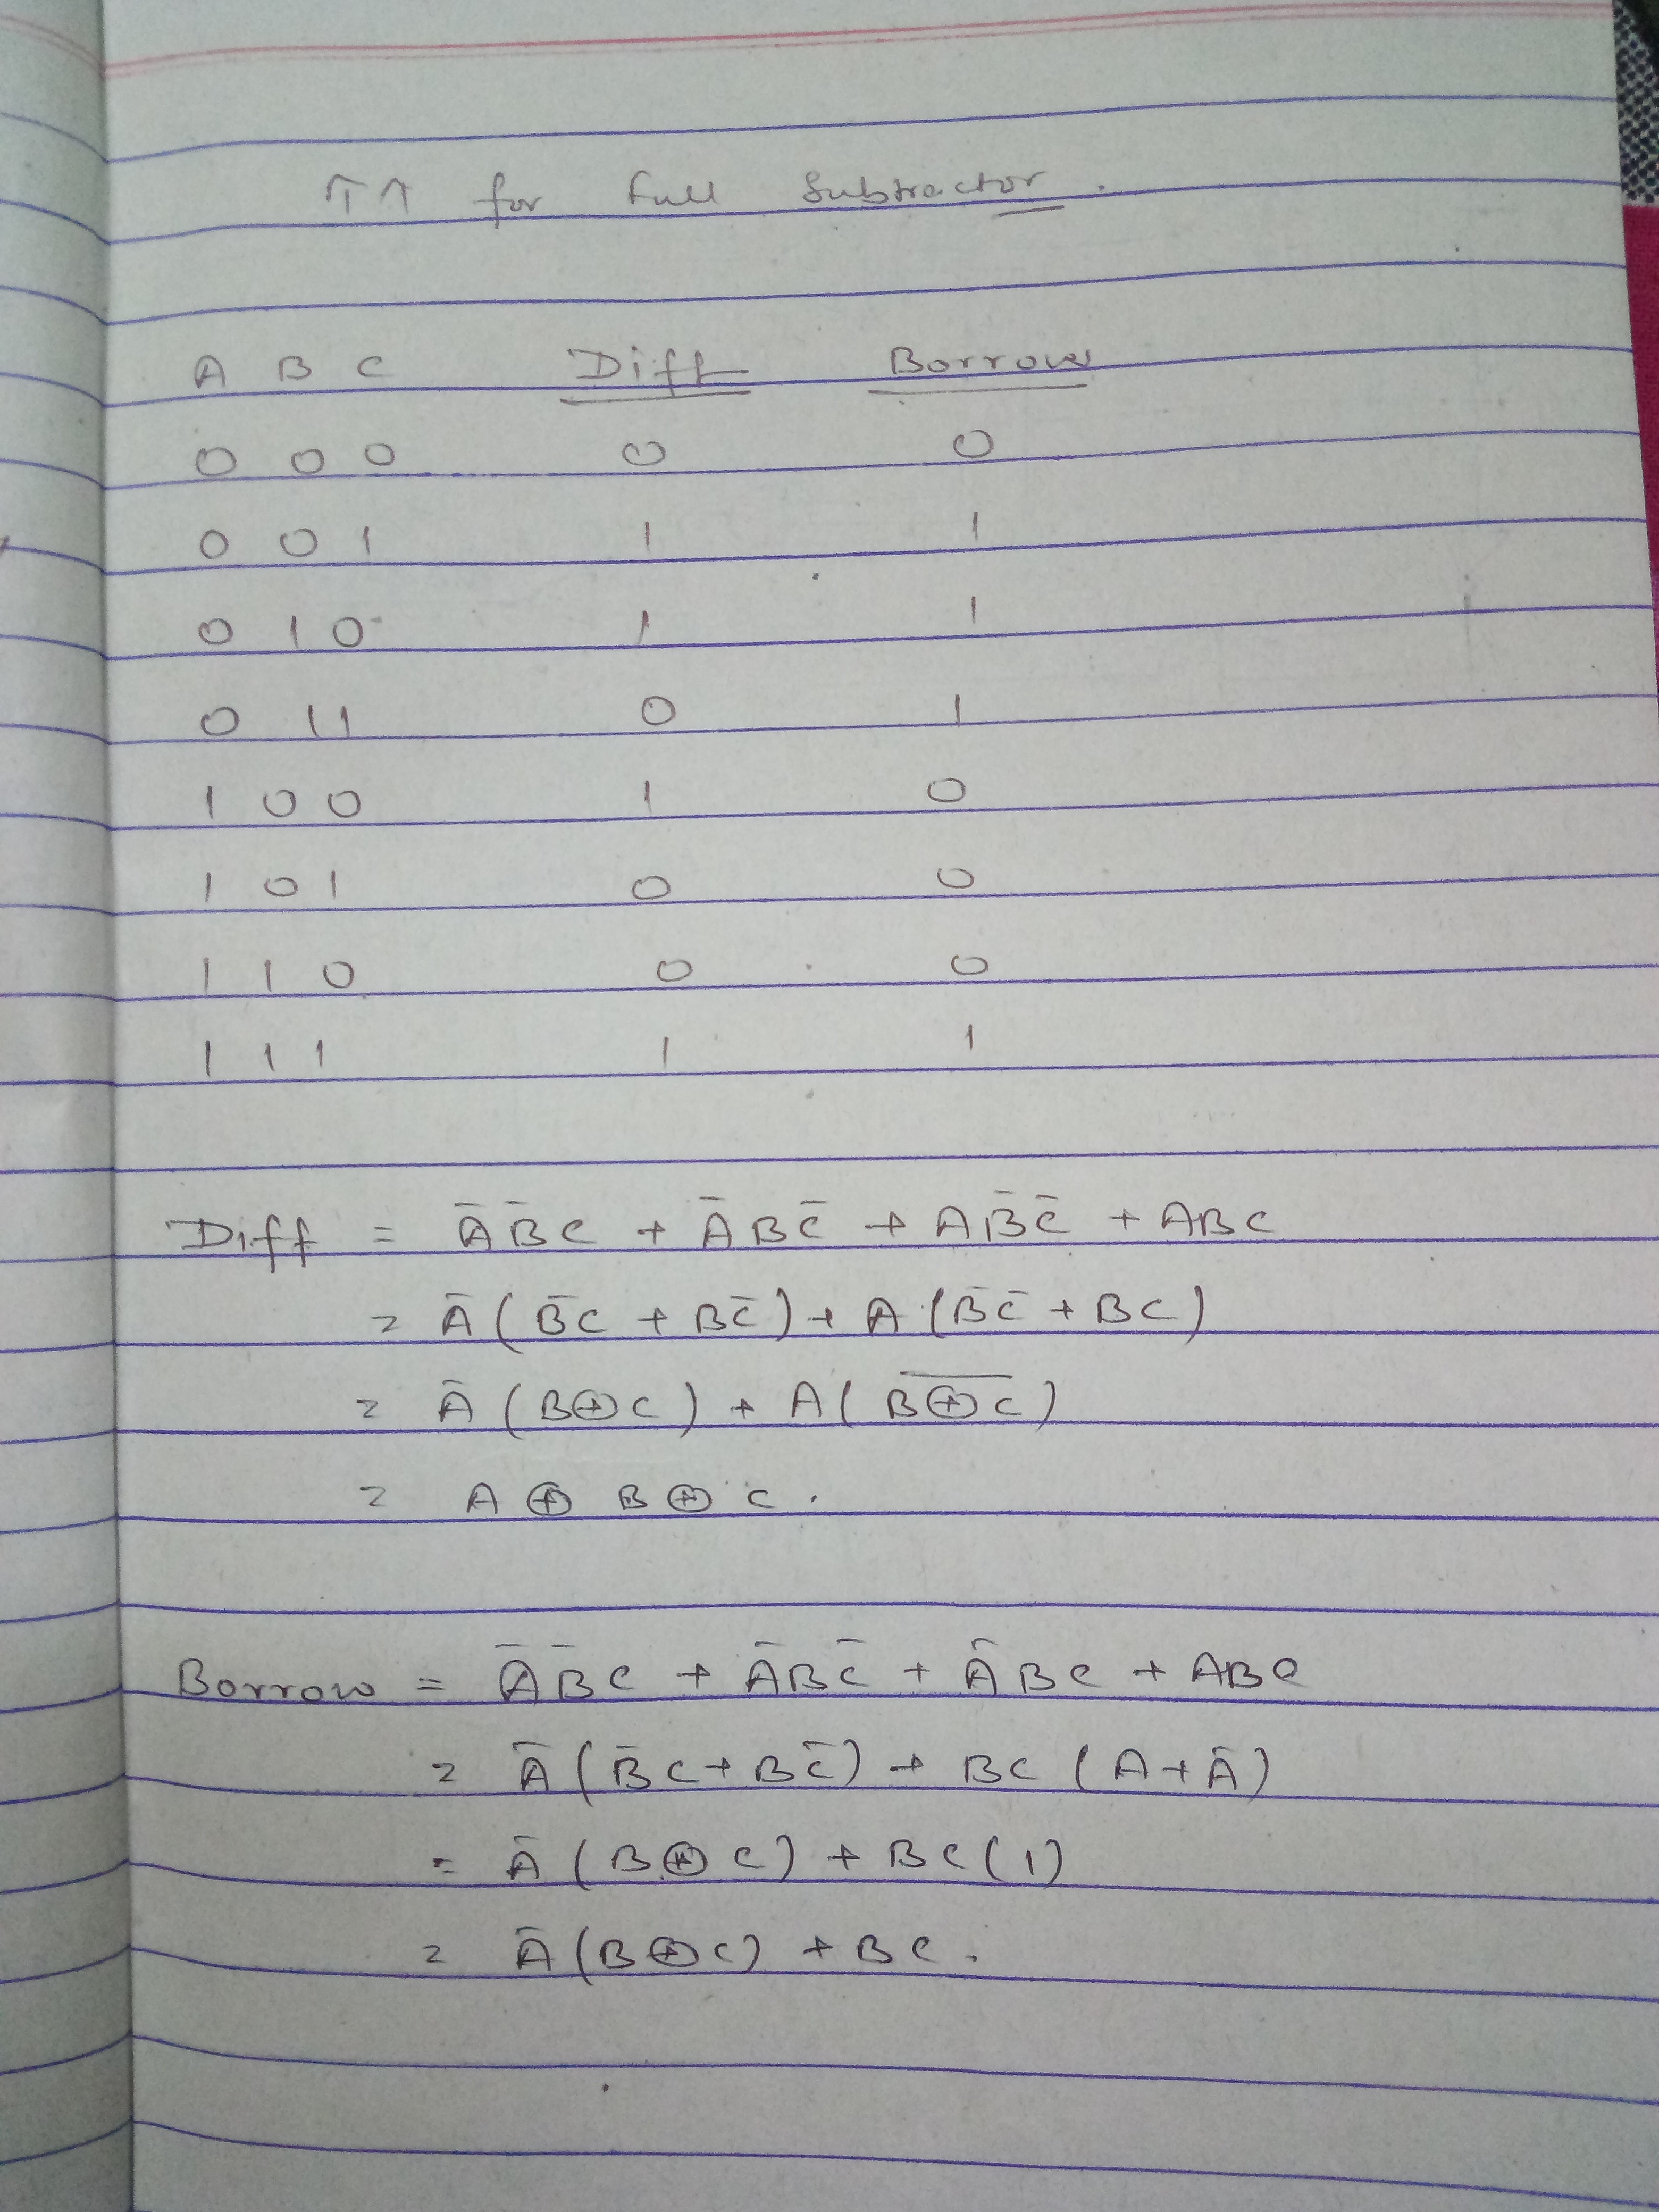 TT for Full Subtractor.
A B C Diff Borrow
0 0 0 0 0
0 0 1 1 1
0 1 0 1 1
0 1 1 0 1
1 0 0 1 0
1 0 1 0 0
1 1 0 0 0
1 1 1 1 1
Diff = A̅B̅C + A̅BC̅ + AB̅C̅ + ABC
= A̅(B̅C + BC̅) + A(B̅C̅ + BC)
= A̅(B⊕C) + A(B̅⊕̅C̅)
= A ⊕ B ⊕ C.
Borrow = A̅B̅C + A̅BC̅ + A̅BC + ABC
= A̅(B̅C+BC̅) + BC(A+A̅)
= A̅(B⊕C) + BC(1)
= A̅(B⊕C) + BC.